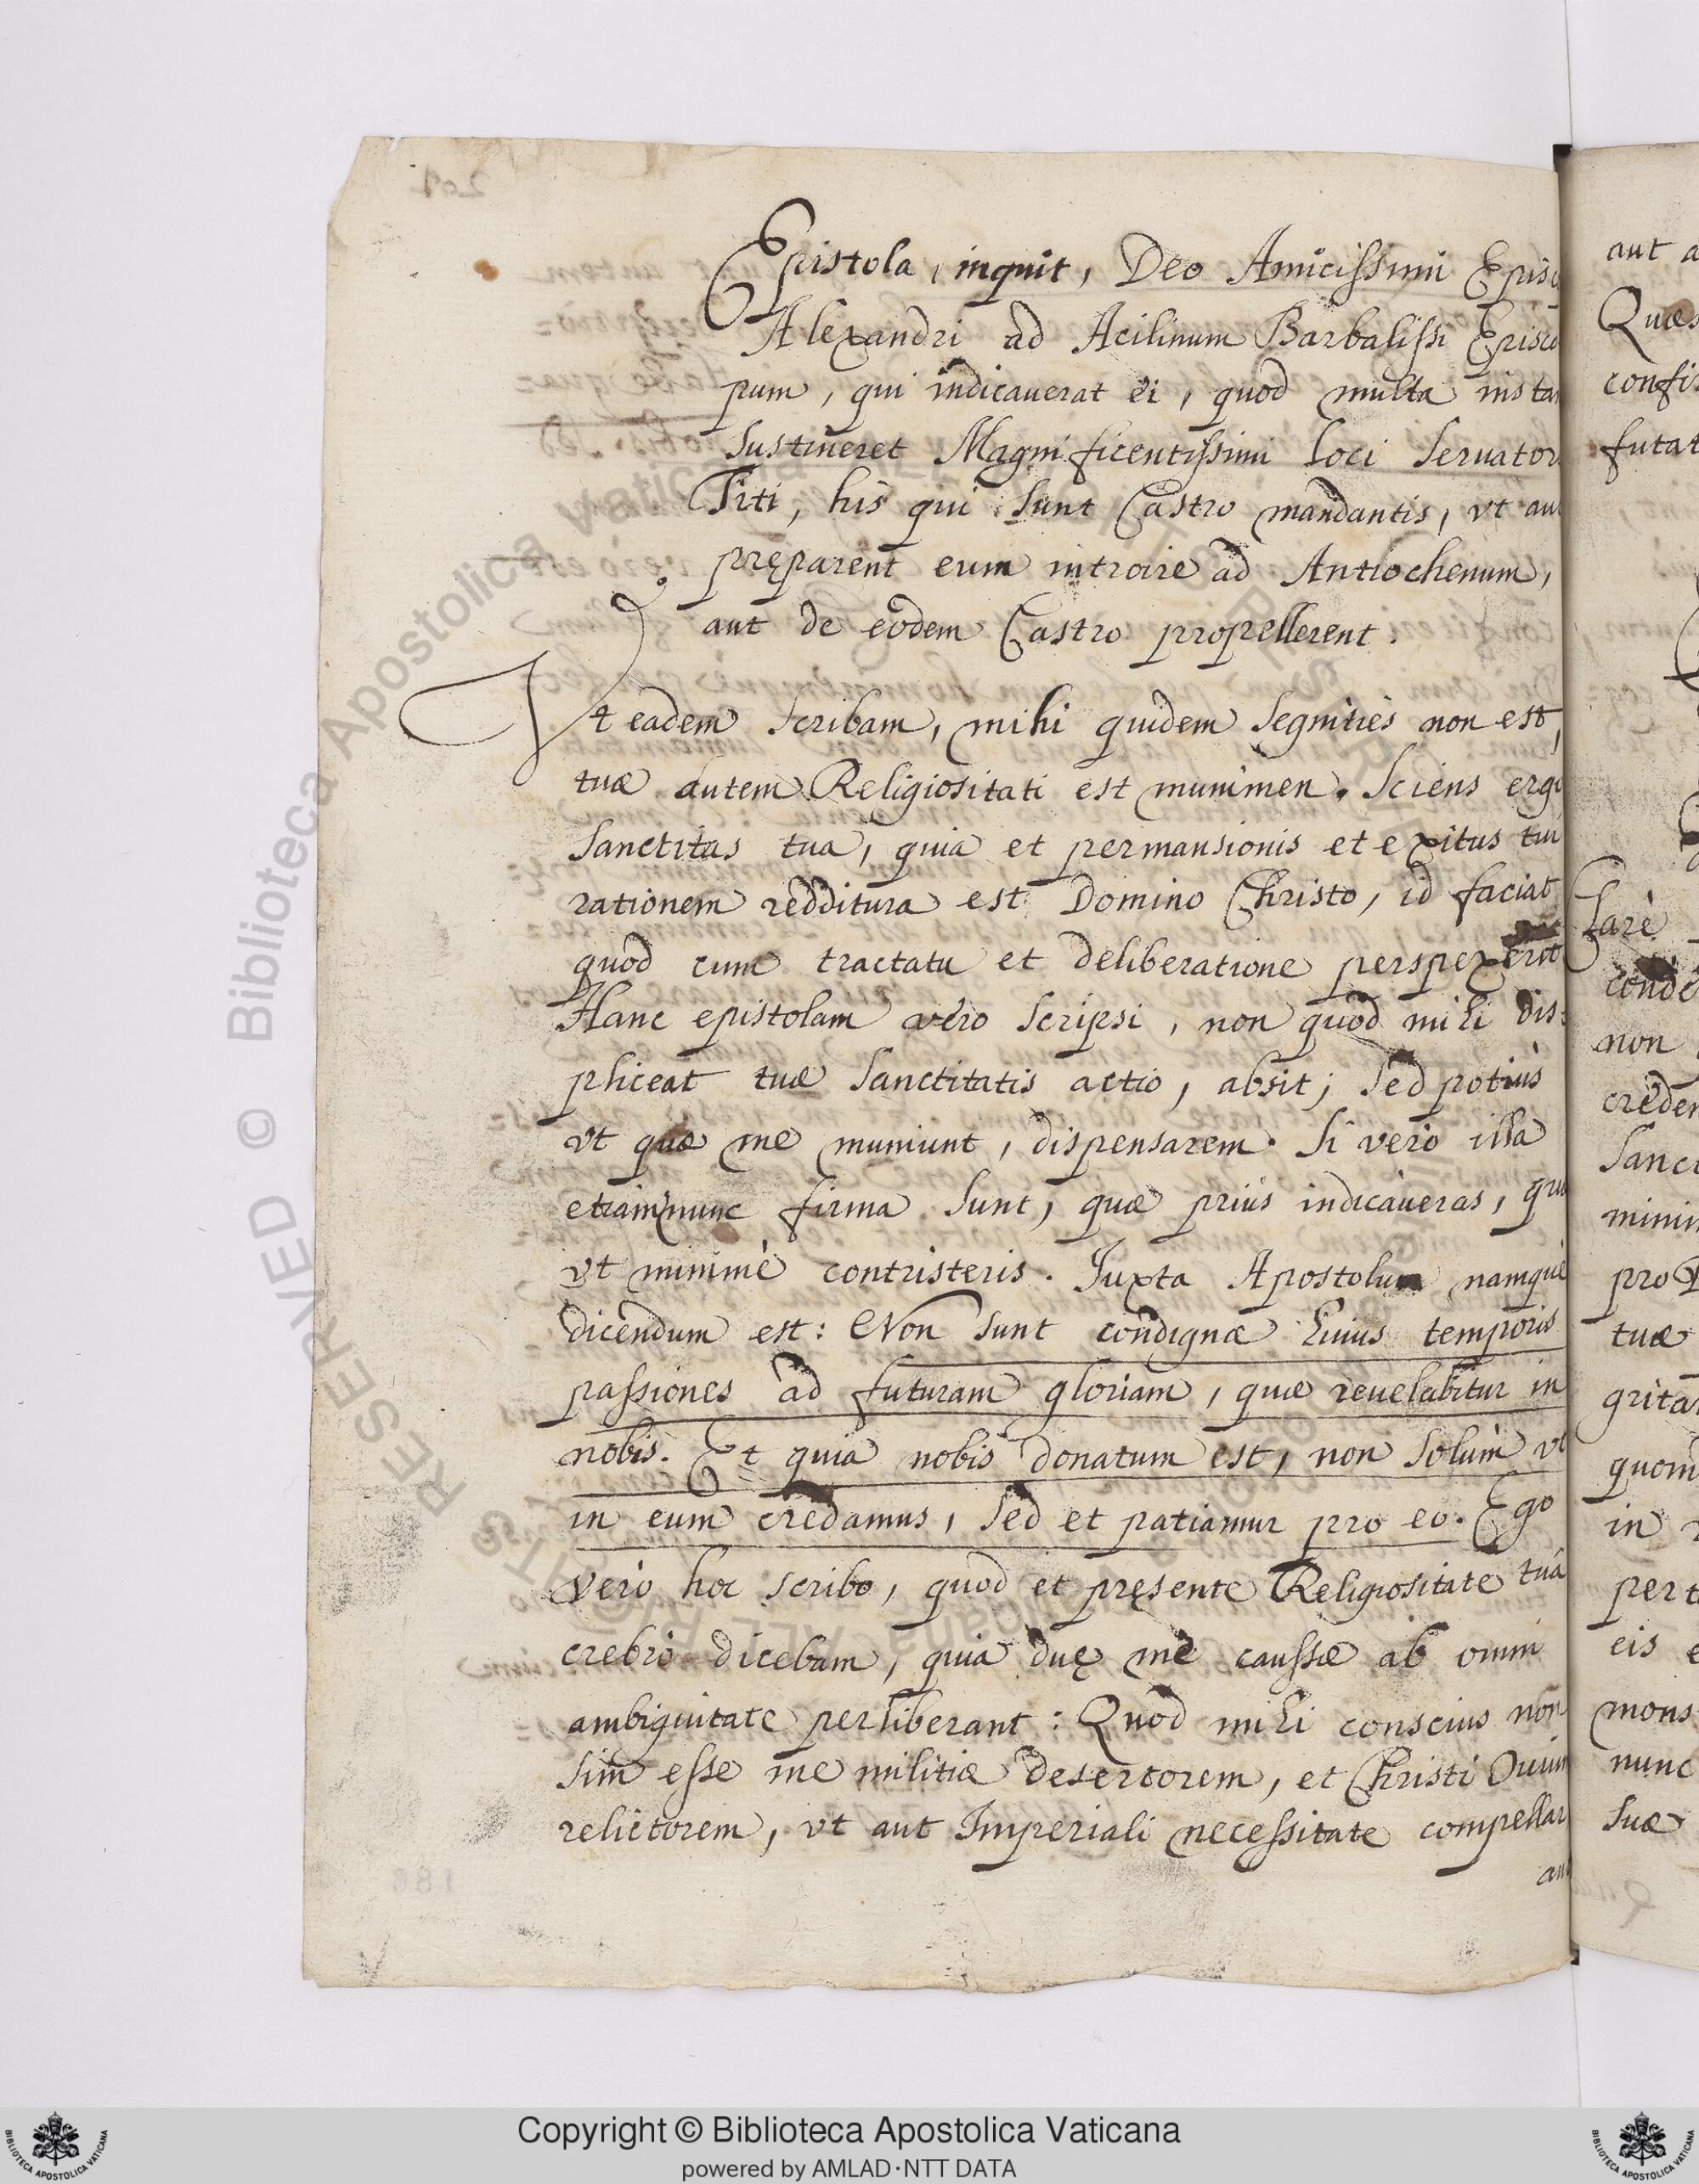 Epistola, inquit, Deo Amicissimi Episco
Alexandri ad Acilinum Barbalissi Episco
pum, qui indicauerat ei, quod multa instan
sustineret Magnificentissimi loci seruator
Titi, his qui sunt Castro mandantis, vt aut
pręparent eum introire ad Antiochenum,
aut de eodem Castro propellerent.
Vt eadem scribam, mihi quidem segnities non est,
tuæ autem Religiositati est munimen. Sciens ergo
sanctitas tua, quia et permansionis et exitus tui
rationem redditura est Domino Christo, id faciat
quod cum tractatu et deliberatione perspexerit
Hanc epistolam vero scripsi, non quod mihi dis:
pliceat tuæ sanctitatis actio, absit; sed potiùs
vt quæ me muniunt, dispensarem. Si vero illa
etiamnunc firma sunt, quæ priùs indicaueras,
vt minimè contristeris. Juxta Apostolum namque
dicendum est: Non sunt condignæ huius temporis
passiones ad futuram gloriam, quæ reuelabitur in
nobis. Et quia nobis donatum est, non solùm vt
in eum credamus, sed et patiamur pro eo. Ego
verò hoc scribo, quod et pręsente Religiositate tuâ
crebrò dicebam, quia duę me caussæ ab omni
ambiguitate perliberant: Quod mihi conscius non
sim esse me militiæ desertorem, et Christi Ouium
relictorem, vt aut Imperiali necessitate compellar
aut
aut a
Quæs
confi
futat
Lare
conde
non
creden
Sanct
minim
prop
tuæ
grita
quom
in
per t
eis e
mons
nunc
suæ
© Biblioteca Apostolica Vaticana
RESERVED
Copyright © Biblioteca Apostolica Vaticana
powered by AMLAD·NTT DATA
BIBLIOTECA APOSTOLICA VATICANA
BIBLIOTECA APOSTOLICA VATICANA